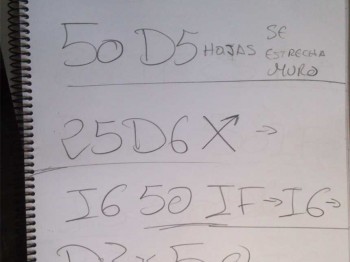 50 D5 HOJAS SE ESTRECHA MURO
25D6 X →
I6 50 IF→I6→